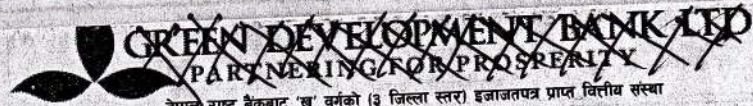 GREEN DEVELOPMENT BANK LTD
PARTNERING FOR PROSPERITY
नेपाल राष्ट्र बैंकबाट 'ख' वर्गको (३ जिल्ला स्तर) इजाजतपत्र प्राप्त वित्तीय संस्था